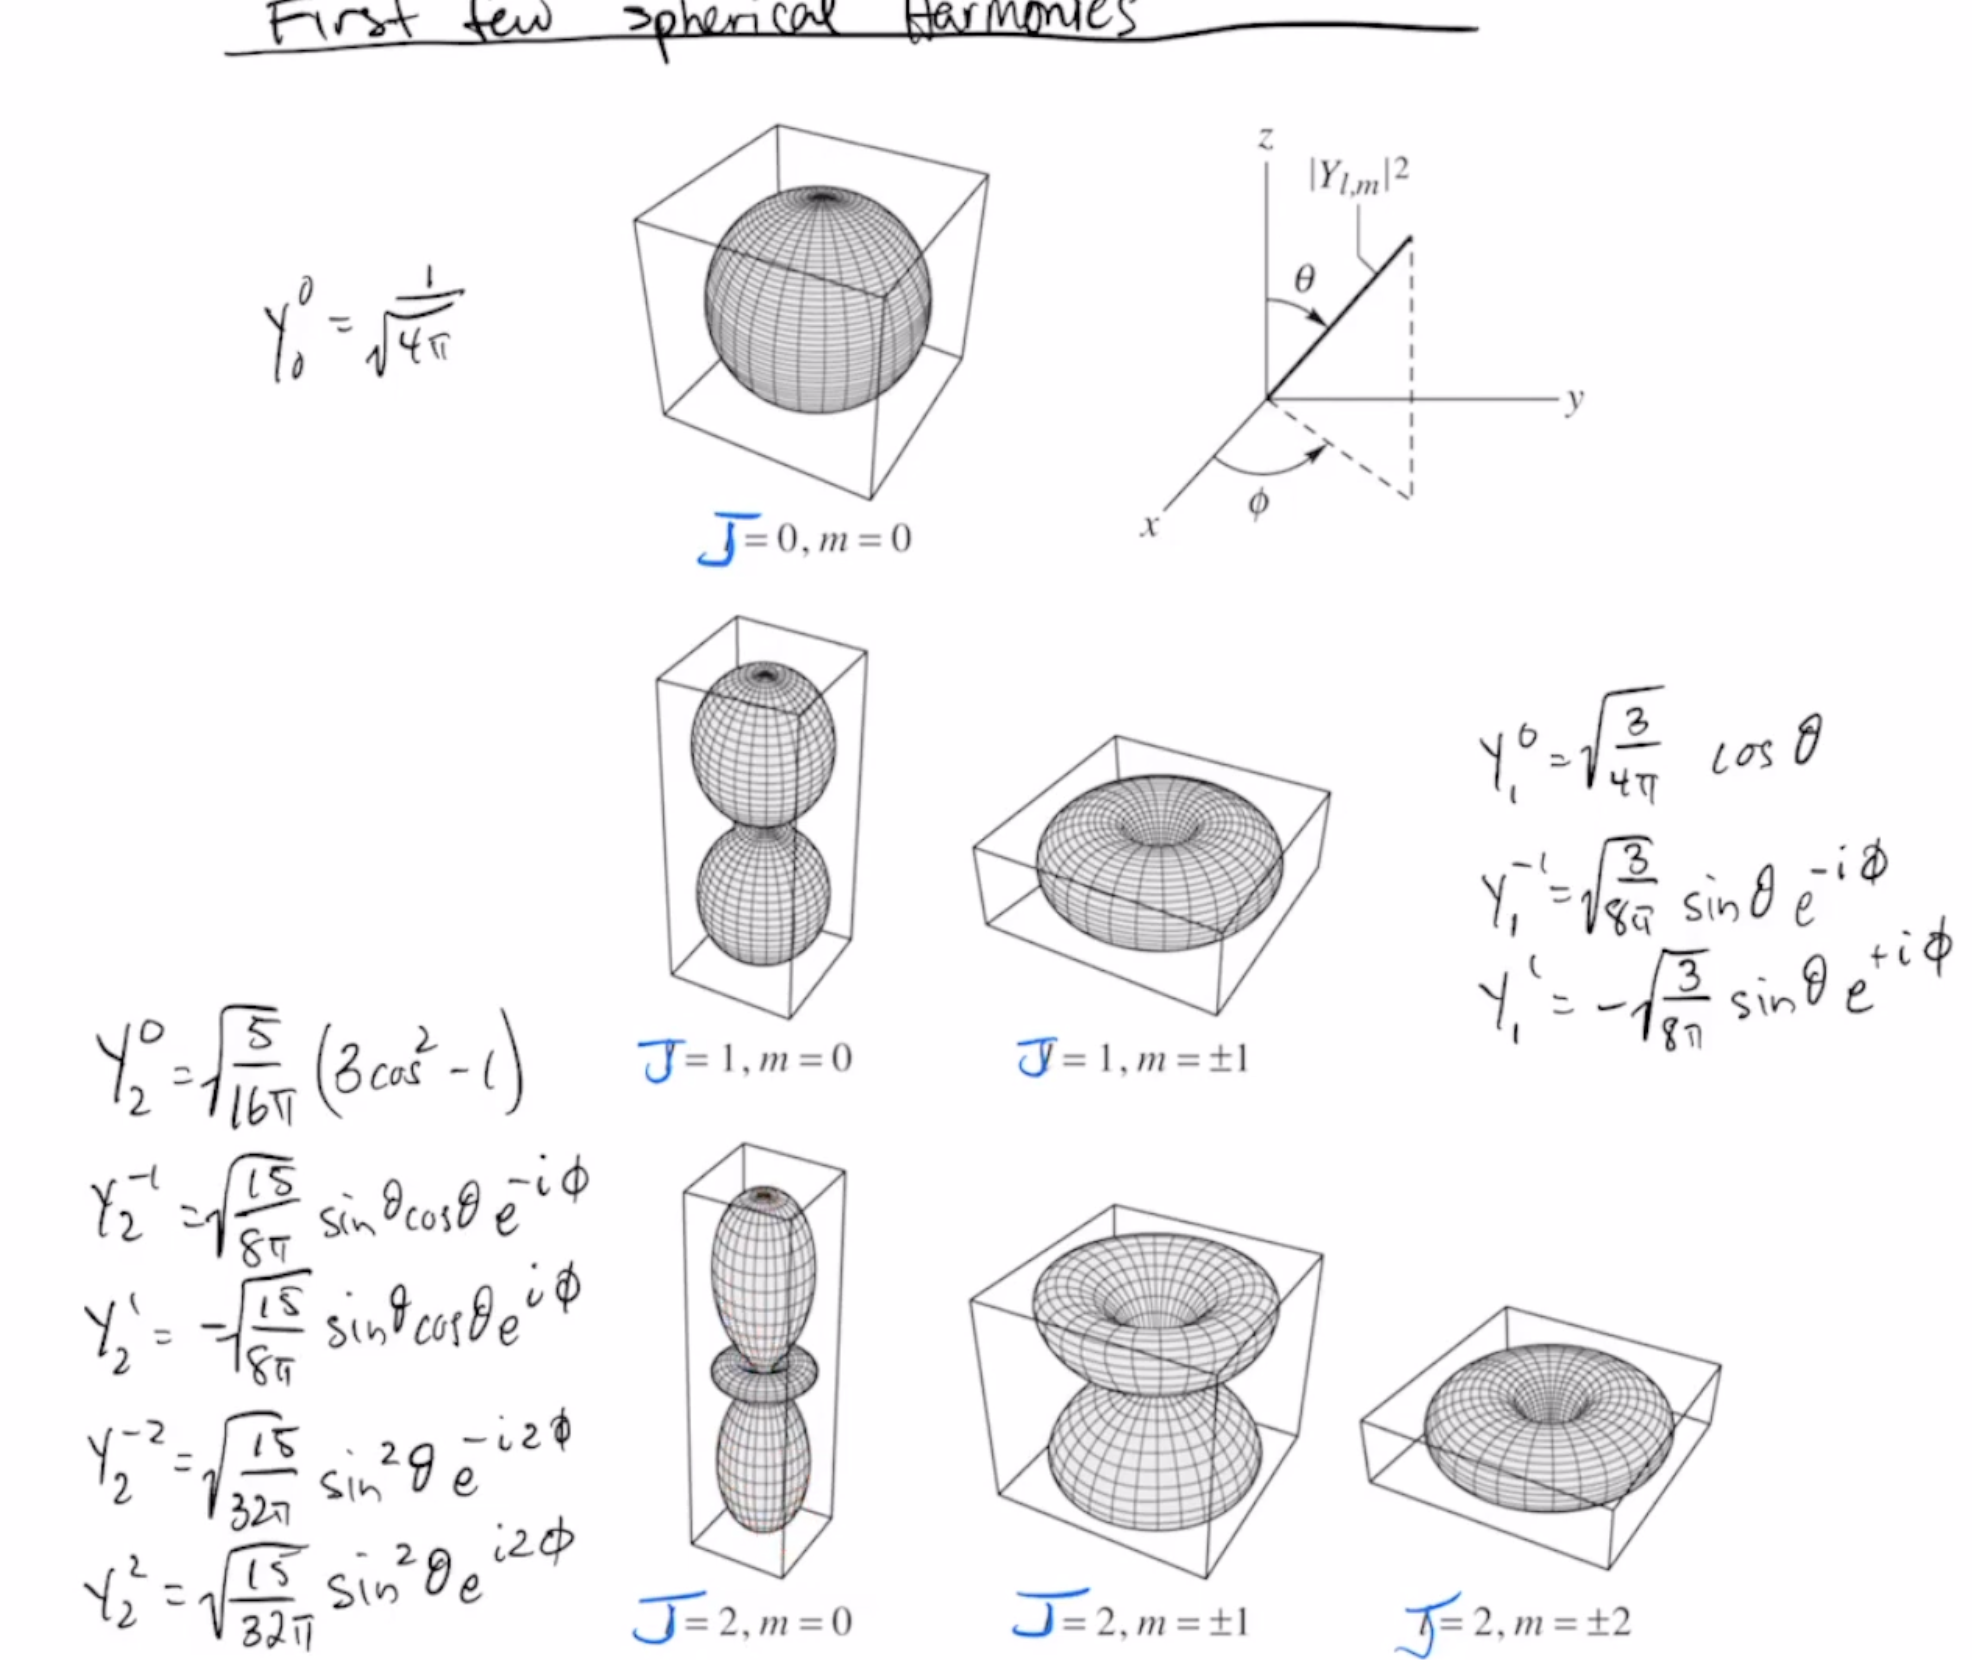 First few Spherical Harmonics
z
|Y_{l,m}|2
θ
Y_0^0 = 1/√4π
y
φ
x
J = 0, m = 0
Y_1^0 = √(3/4π) cos θ
Y_1^{-1} = √(3/8π) sinθ e^{-iφ}
Y_1^1 = -√(3/8π) sinθ e^{+iφ}
J = 1, m = 0
J = 1, m = ±1
Y_2^0 = √(5/16π) (3cos^2 - 1)
Y_2^{-1} = √(15/8π) sinθcosθ e^{-iφ}
Y_2^1 = -√(15/8π) sinθcosθ e^{iφ}
Y_2^{-2} = √(15/32π) sin^2θ e^{-i2φ}
Y_2^2 = √(15/32π) sin^2θ e^{i2φ}
J = 2, m = 0
J = 2, m = ±1
J = 2, m = ±2